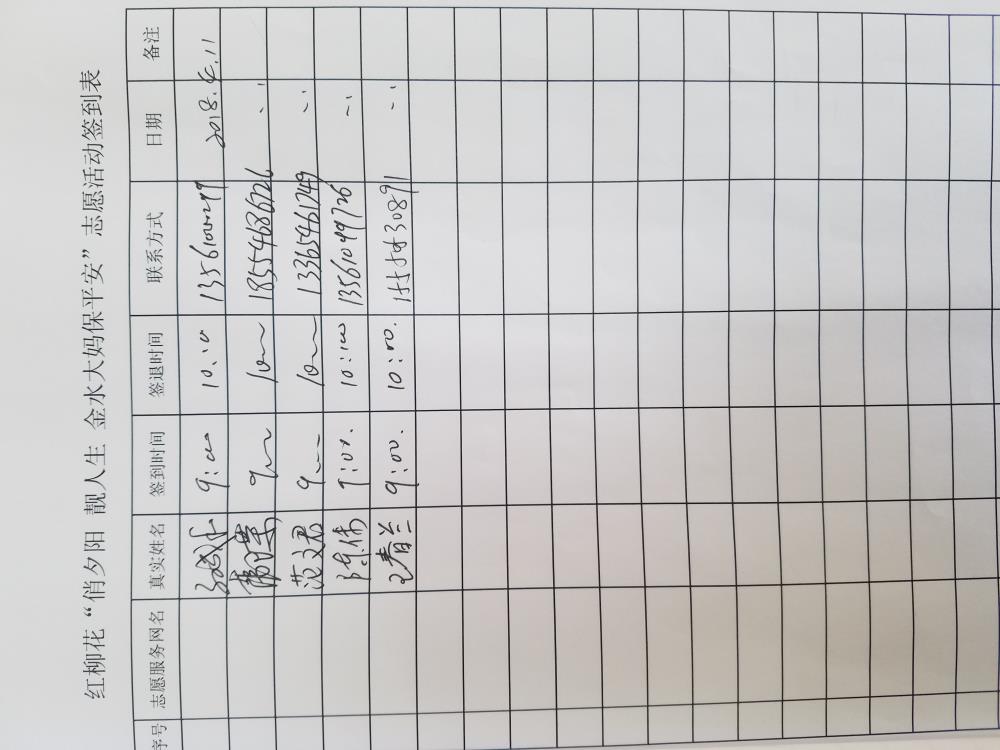 红柳花“俏夕阳 靓人生 金水大妈保平安”志愿活动签到表
序号 志愿服务网名 真实姓名 签到时间 签退时间 联系方式 日期 备注
9:00 10:00 2018.4.11
18554686726
范文君 13365461749
9:00. 10:00 13561099726
王春兰 9:00. 10:00. 15554630891